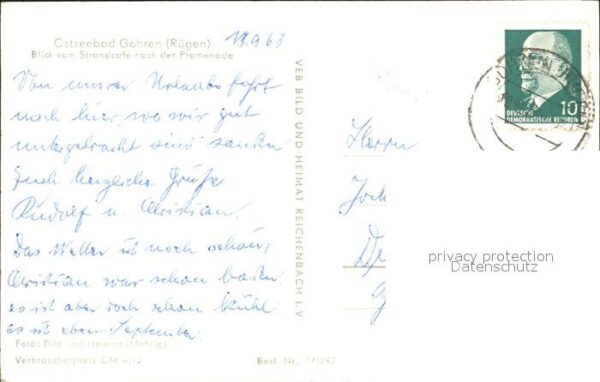 Ostseebad Göhren (Rügen)
18.9.63
Blick vom Strandcafé nach der Promenade
Von unsrer Urlaubsfahrt
nach hier, wo wir gut
untergebracht sind senden
Euch herzliche Grüße
Rudolf u. Christian.
Das Wetter ist noch schön,
Christian war schon baden
es ist aber doch schon kühl
es ist eben September.
Foto: Bild und Heimat (Mehlig)
Verbraucherpreis: DM
Best. Nr.
VEB BILD UND HEIMAT REICHENBACH I. V
Herrn
10
DEUTSCHE
DEMOKRATISCHE REPUBLIK
privacy protection
Datenschutz